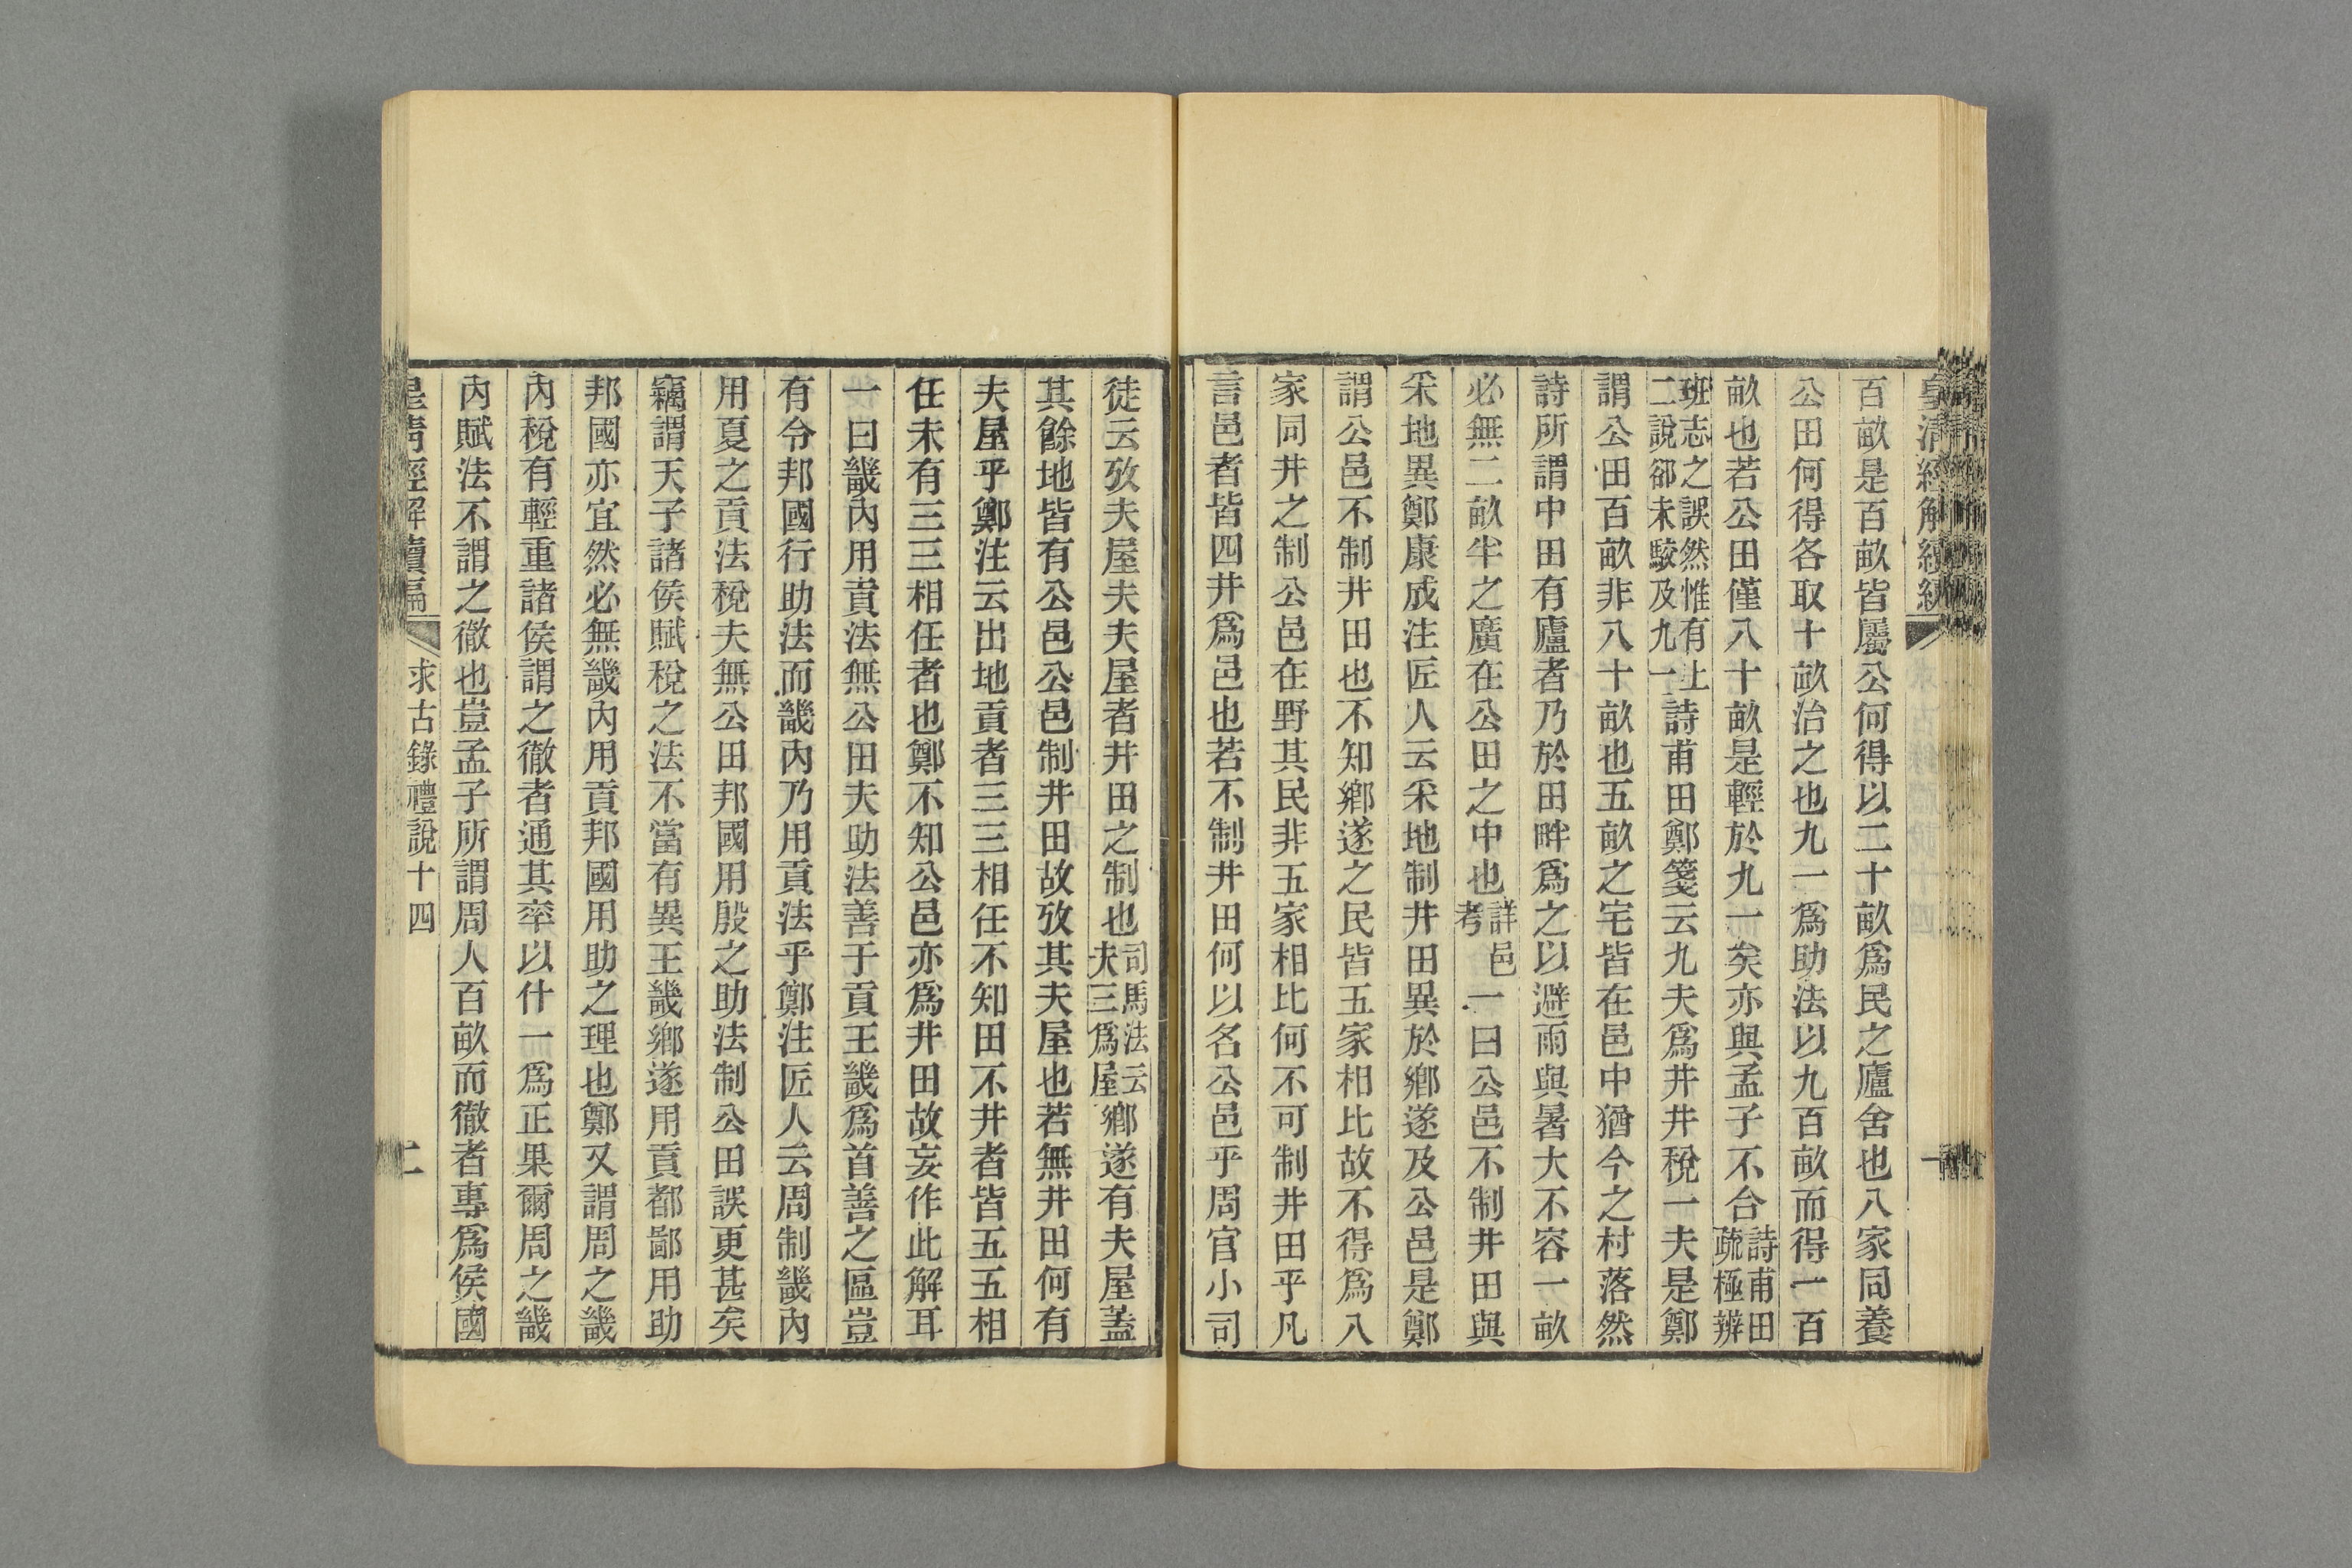 皇清經解續編
一
百畝是百畝皆屬公何得以二十畝爲民之廬舍也八家同養
公田何得各取十畝治之也九一爲助法以九百畝而得一百
畝也若公田僅八十畝是輕於九一矣亦與孟子不合詩甫田疏極辨
班志之誤然惟有上二說卻未駮及九一詩甫田鄭箋云九夫爲井井稅一夫是鄭
謂公田百畝非八十畝也五畝之宅皆在邑中猶今之村落然
詩所謂中田有廬者乃於田畔爲之以避雨與暑大不容一畝
必無二畝半之廣在公田之中也詳邑考一曰公邑不制井田與
采地異鄭康成注匠人云采地制井田異於鄉遂及公邑是鄭
謂公邑不制井田也不知鄉遂之民皆五家相比故不得爲八
家同井之制公邑在野其民非五家相比何不可制井田乎凡
言邑者皆四井爲邑也若不制井田何以名公邑乎周官小司
徒云攷夫屋夫夫屋者井田之制也司馬法云夫三爲屋鄉遂有夫屋蓋
其餘地皆有公邑公邑制井田故攷其夫屋也若無井田何有
夫屋乎鄭注云出地貢者三三相任不知田不井者皆五五相
任未有三三相任者也鄭不知公邑亦爲井田故妄作此解耳
一曰畿內用貢法無公田夫助法善于貢王畿爲首善之區豈
有令邦國行助法而畿內乃用貢法乎鄭注匠人云周制畿內
用夏之貢法稅夫無公田邦國用殷之助法制公田誤更甚矣
竊謂天子諸侯賦稅之法不當有異王畿鄉遂用貢都鄙用助
邦國亦宜然必無畿內用貢邦國用助之理也鄭又謂周之畿
內稅有輕重諸侯謂之徹者通其率以什一爲正果爾周之畿
內賦法不謂之徹也豈孟子所謂周人百畝而徹者專爲侯國
皇清經解續編
求古錄禮說十四
二